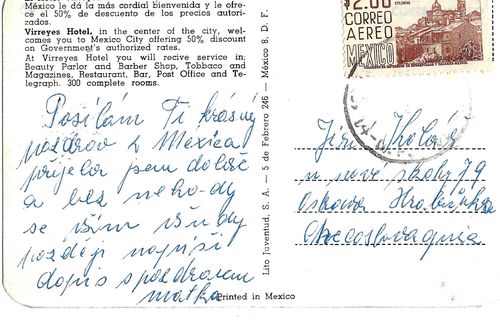 México le da la más cordial bienvenida y le ofre-
ce el 50% de descuento de los precios autori-
zados.
Virreyes Hotel, in the center of the city, wel-
comes you to Mexico City offering 50% discount
on Government's authorized rates.
At Virreyes Hotel you will recive service in;
Beauty Parlor and Barber Shop, Tobbaco and
Magazines, Restaurant, Bar, Post Office and Te-
legraph. 300 complete rooms.
Posílám Ti krásný
pozdrav z México
přijela jsem dobře
a bez nehody
se vším všudy
později napíši
dopis s pozdravem
matka
Lito Juventud, S. A. — 5 de Febrero 246 — México 8, D. F.
Printed in Mexico
$2.00
COLONIAL
CORREO
AEREO
MEXICO
Jiří Kolář
u nové školy 79
Ostrava Hrabůvka
Checoslovaquia